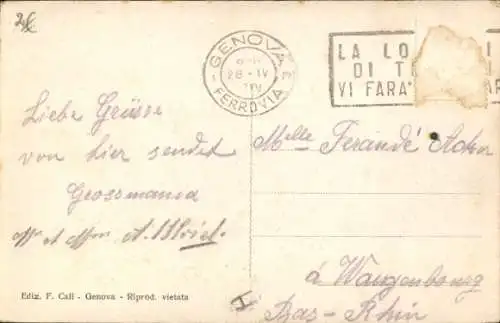 GENOVA
28 - IV
FERROVIA
LA LO
DI T
VI FARA'
Liebe Grüsse
von hier sendet
Grossmama
Mr et Mme A.
Melle Ferande
à Wangenbourg
Bas-Rhin
Ediz. F. Cali - Genova - Riprod. vietata